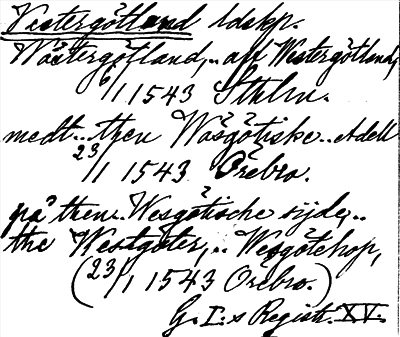 Västergötland ldskp.
Wästergötland,.. aff Westergötland,
6/1 1543 Sthlm.
medt.. then Wäsgötiske.. Adell
23/1 1543 Örebro.
på then.. Wesgötische sijde,..
the Westgöter,.. Wesgötehop,
(23/1 1543 Örebro.)
G. I:s Registr. XV.